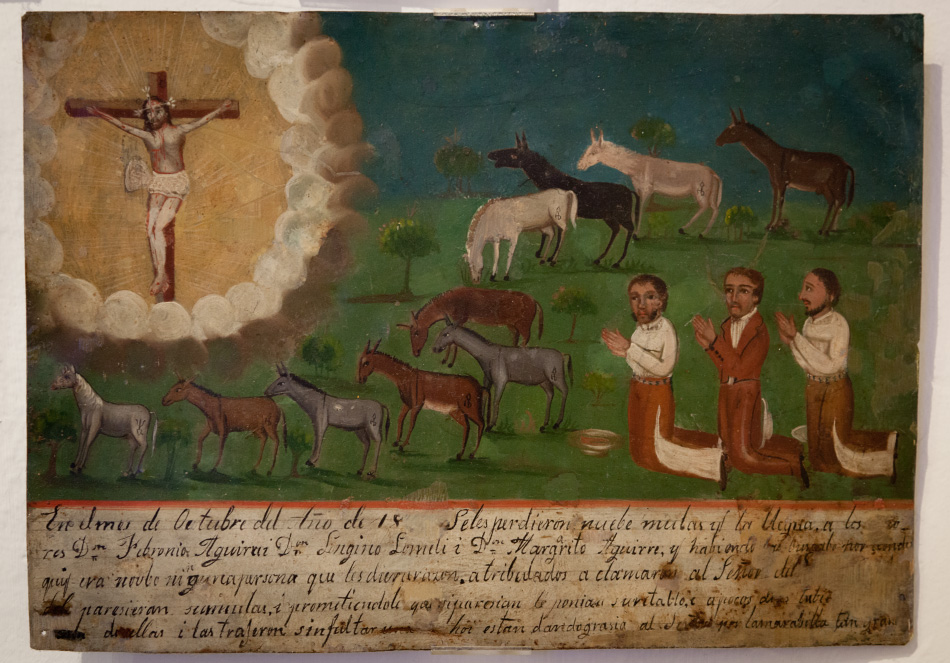 En el mes de Octubre del Año de 18 Seles perdieron nuebe mulas y la Llegua, a los
res Dn Febronio Aguirai Dn Longino Lomeli i Dn Margarito Aguirre, y habiendo
quiy era no ubo ninguna persona que les diera razon, atribulados a clamaron al Señor del
paresieran sus mulas, i prometiendole que si paresian le ponian su retablo, e apocos dias
de ellas i las trajeron sin faltar una hoi estan dando grasias al por la marabilla tan gran